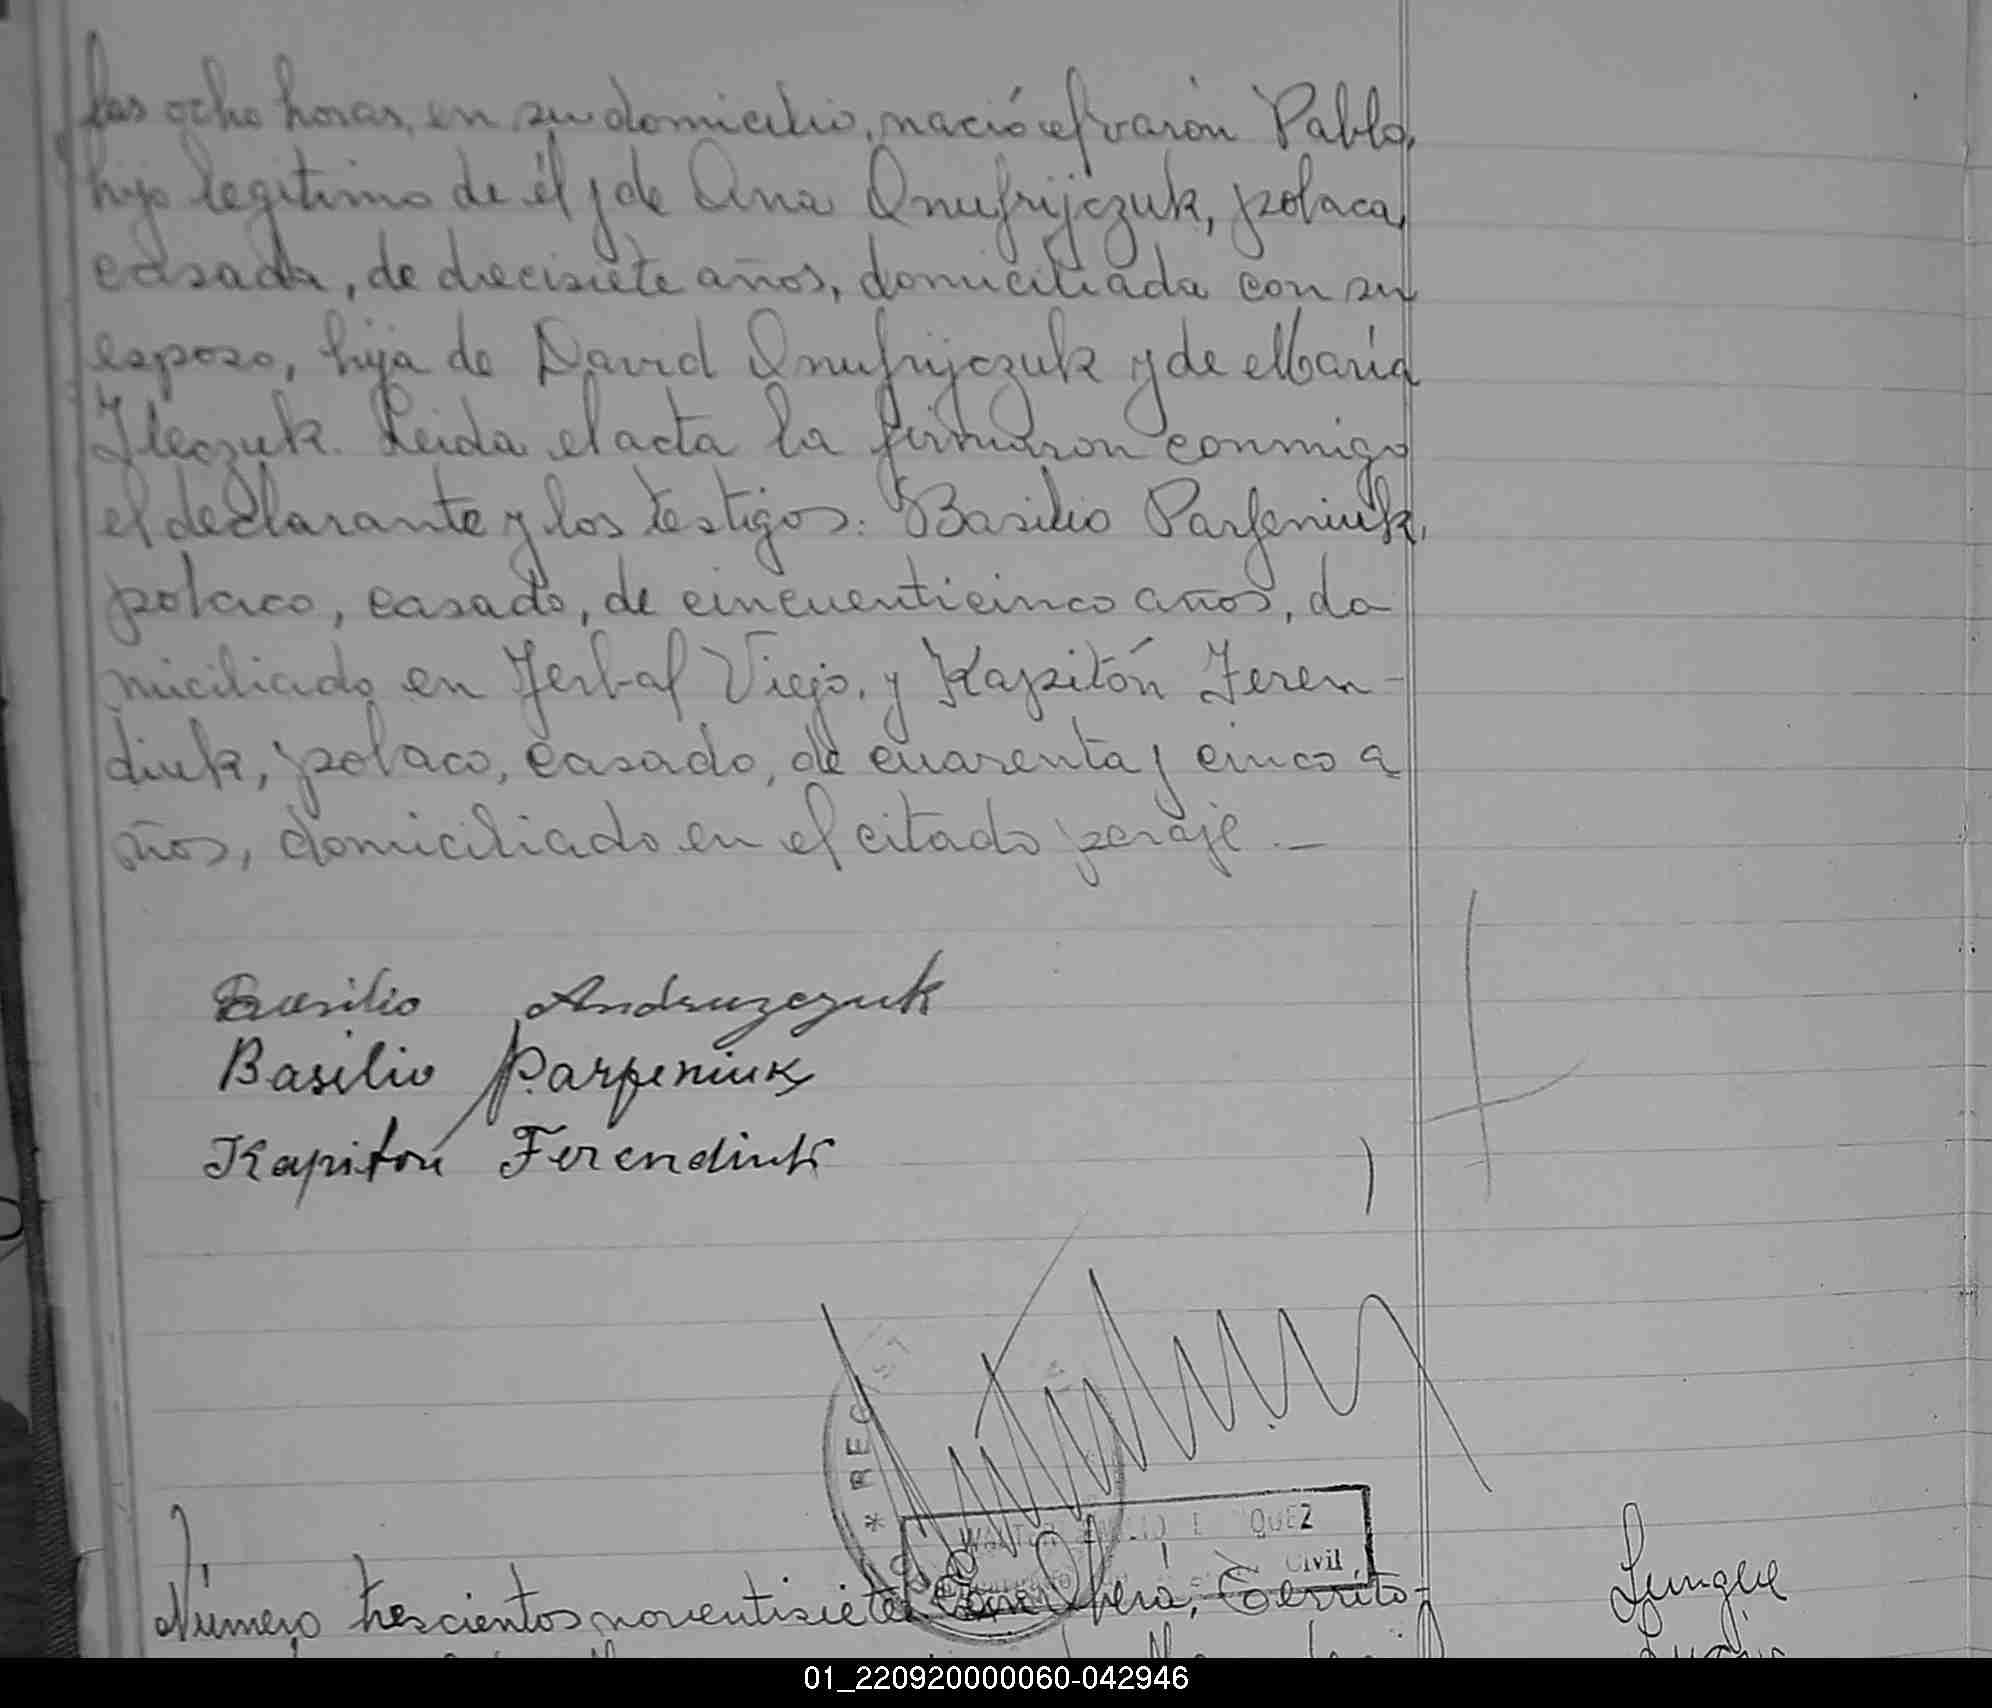 las ocho horas, en su domicilio, nació el varón Pablo,
hijo legítimo de él y de Ana Onufrijczuk, polaca,
casada, de diecisiete años, domiciliada con su
esposo, hija de David Onufrijczuk y de María
Ileczuk. Leida el acta la firmaron conmigo
el declarante y los testigos: Basilio Parfeniuk,
polaco, casado, de cincuenticinco años, do
miciliado en Yerbal Viejo, y Kapitón Feren-
diuk, polaco, casado, de cuarenta y cinco a
ños, domiciliado en el citado paraje.—
Basilio Andruzczuk
Basilio Parfeniuk
Kapitón Ferendiuk
* REGIST
QUEZ
Civil
Número trescientos noventisiete En Oberá, Territo-
01_220920000060-042946